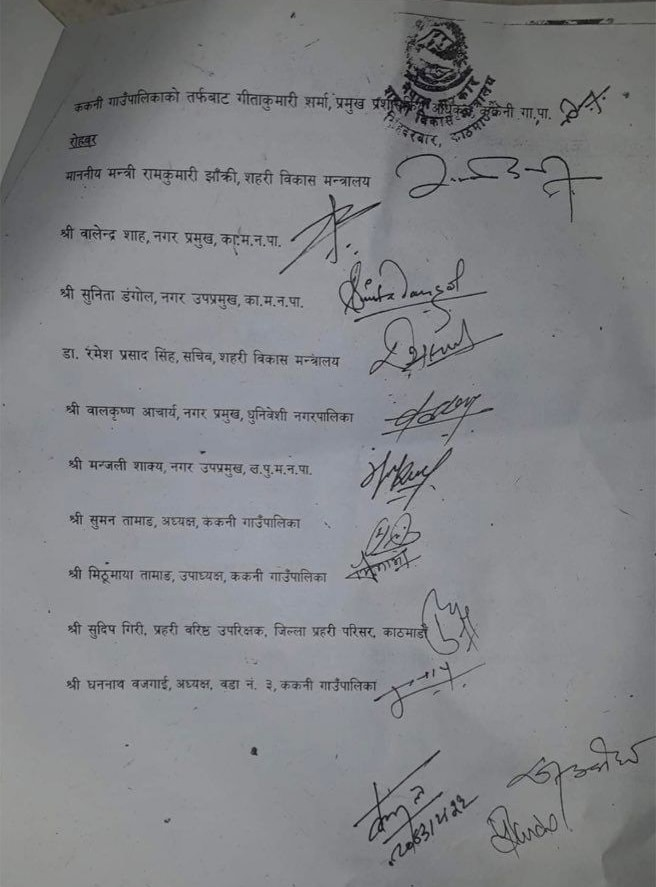 ककनी गाउँपालिकाको तर्फबाट गीताकुमारी शर्मा, प्रमुख प्रशासकीय अधिकृत, ककनी गा.पा.
शहरी विकास मन्त्रालय
सिंहदरबार, काठमाडौं
रोहवर
माननीय मन्त्री रामकुमारी झाँक्री, शहरी विकास मन्त्रालय
श्री वालेन्द्र शाह, नगर प्रमुख, का.म.न.पा.
श्री सुनिता डंगोल, नगर उपप्रमुख, का.म.न.पा.
डा. रमेश प्रसाद सिंह, सचिव, शहरी विकास मन्त्रालय
श्री वालकृष्ण आचार्य, नगर प्रमुख, धुनिवेशी नगरपालिका
श्री मन्जली शाक्य, नगर उपप्रमुख, ल.पु.म.न.पा.
श्री सुमन तामाङ, अध्यक्ष, ककनी गाउँपालिका
श्री मिठूमाया तामाङ, उपाध्यक्ष, ककनी गाउँपालिका
श्री सुदिप गिरी, प्रहरी वरिष्ठ उपरिक्षक, जिल्ला प्रहरी परिसर, काठमाडौं
श्री घननाथ वजगाई, अध्यक्ष, वडा नं. ३, ककनी गाउँपालिका